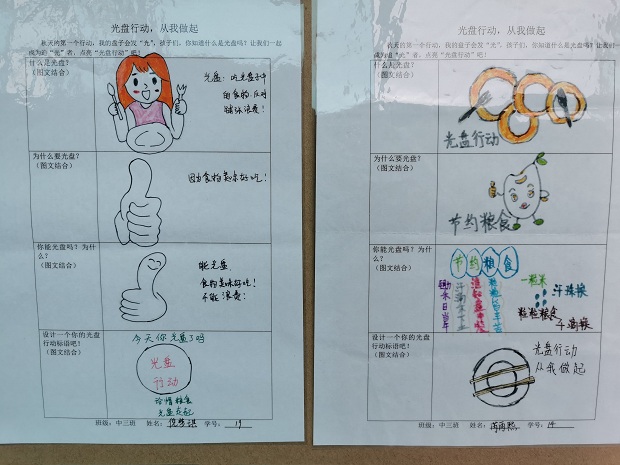 光盘行动，从我做起
秋天的第一个行动，我的盘子会发“光”，孩子们，你知道什么是光盘吗？让我们一起
成为的“光”者，点亮“光盘行动”吧！
什么是光盘？
（图文结合）
光盘：吃光盘子中
的食物反对
铺张浪费！
为什么要光盘？
（图文结合）
因为食物美味好吃！
你能光盘吗？为什
么？
（图文结合）
能光盘
食物美味好吃！
不能浪费！
设计一个你的光盘
行动标语吧！
（图文结合）
今天你光盘了吗
光盘
行动
珍惜粮食
光盘走起
班级：中三班 姓名： 学号：19
光盘行动，从我做起
秋天的第一个行动，我的盘子会发“光”，孩子们，你知道什么是光盘吗？让我们一
成为的“光”者，点亮“光盘行动”吧！
什么是光盘？
（图文结合）
光盘行动
为什么要光盘？
（图文结合）
节约粮食
你能光盘吗？为什么？
（图文结合）
节约粮食
锄禾日当午
汗滴禾下土
谁知盘中餐
粒粒皆辛苦
一粒米
千滴汗
粒粒粮食
设计一个你的光盘
行动标语吧！
（图文结合）
光盘行动
从我做起
班级：中三班 姓名： 学号：14